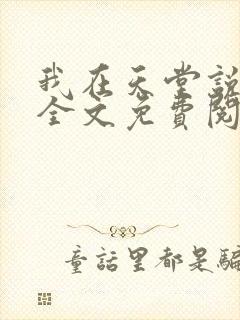 我在天堂説
全文免費閱
童話里都是騙